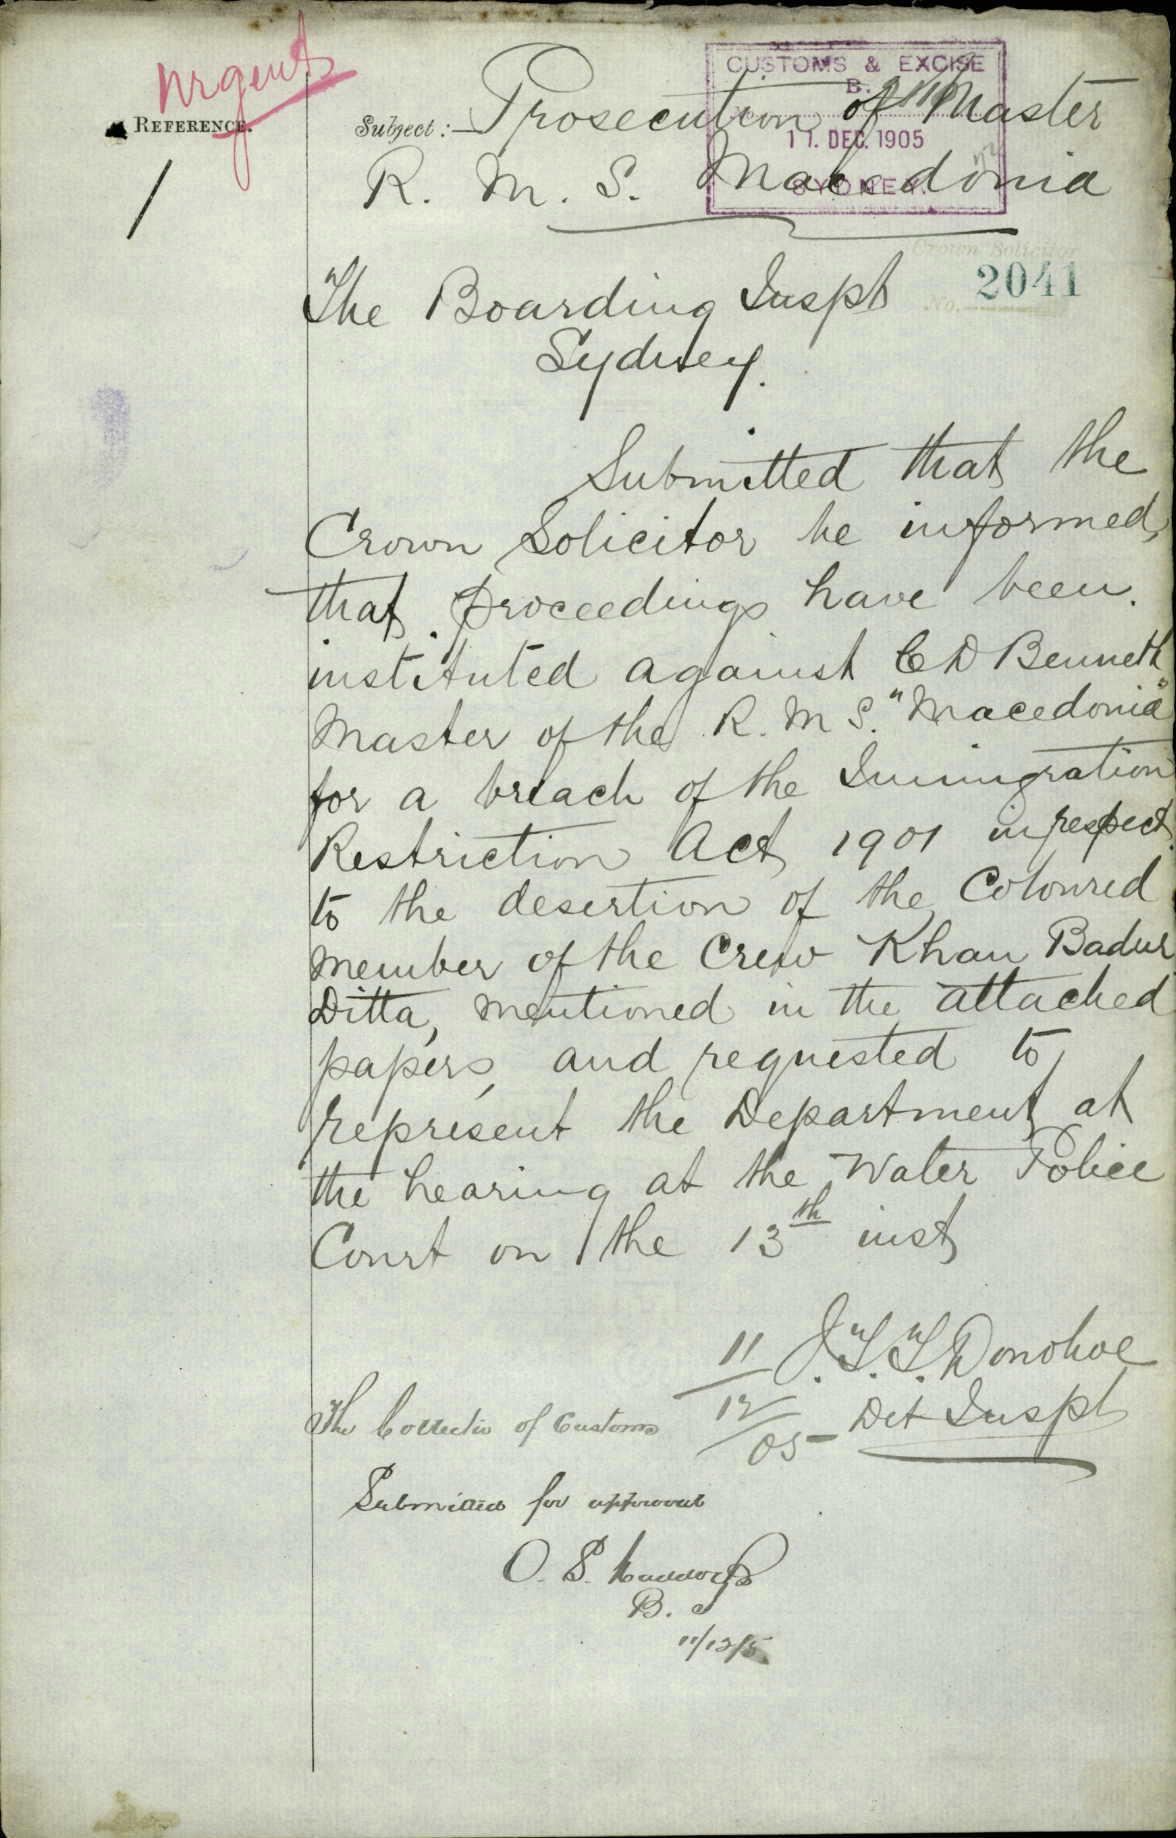 Urgent
REFERENCE.
1
Subject:— Prosecution of Master
R. M. S. Macedonia
CUSTOMS & EXCISE
B.
11. DEC. 1905
SYDNEY.
Crown Solicitor
No. 2041
The Boarding Inspt
Sydney.
Submitted that the
Crown Solicitor be informed
that proceedings have been
instituted against C D Bennett
Master of the R. M S. "Macedonia"
for a breach of the Immigration
Restriction Act 1901 in respect
to the desertion of the Coloured
member of the Crew Khan Badur
Ditta, mentioned in the attached
papers, and requested to
represent the Department at
the hearing at the Water Police
Court on the 13th inst
J. T. T. Donohoe
Det Inspt
11/12/05
The Collector of Customs
Submitted for approval
O. S.
B. I
11/12/5